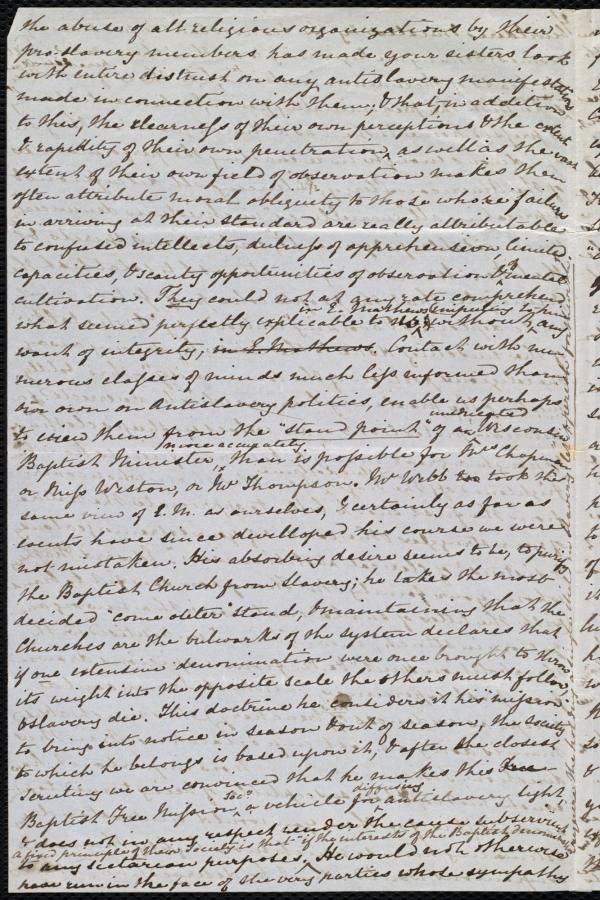 the abuse of all religious organizations by their
pro-slavery members has made your sisters look
with entire distrust on any antislavery manifestation
made in connection with them; & that, in addition
to this, the clearness of their own perceptions & the extent
& rapidity of their own penetration, as well as the vast
extent of their own field of observation makes them
often attribute moral obliquity to those whose failure
in arriving at their standard are really attributable
to confused intellects, dulness of apprehension, limited
capacities, & scanty opportunities of observation & of mental
cultivation. They could not at any rate comprehend
in E. Mathews imputing to him
what seemed perfectly explicable to us without any
want of integrity, in E. Mathews. Contact with nu-
merous classes of minds much less informed than
our own on Antislavery politics, enable us perhaps
undirected
to view them from the "stand point" of a Wisconsin
more accurately
Baptist Minister, than is possible for Mrs Chapman
or Miss Weston, or Mr Thompson. Mr Webb took the
same view of E. M. as ourselves, & certainly as far as
events have since developed his course we were
not mistaken. His absorbing desire seems to be, to purify
the Baptist Church from Slavery; he takes the most
decided "come outer" stand, & maintaining that the
Churches are the bulwarks of the system declares that
if one extensive denomination were once brought to throw
its weight into the opposite scale the others must follow,
& slavery die. This doctrine he considers it his mission
to bring into notice in season & out of season, the Society
to which he belongs is based upon it, & after the closest
scrutiny we are convinced that he makes this Free-
diffusing
Baptist Free Mission Socy a vehicle for antislavery light
& does not in any respect render the cause subservient
a fixed principle of their Society is that "if the interests of the Baptist denomination
to any sectarian purposes. He would not otherwise
have run in the face of the very parties whose sympathy